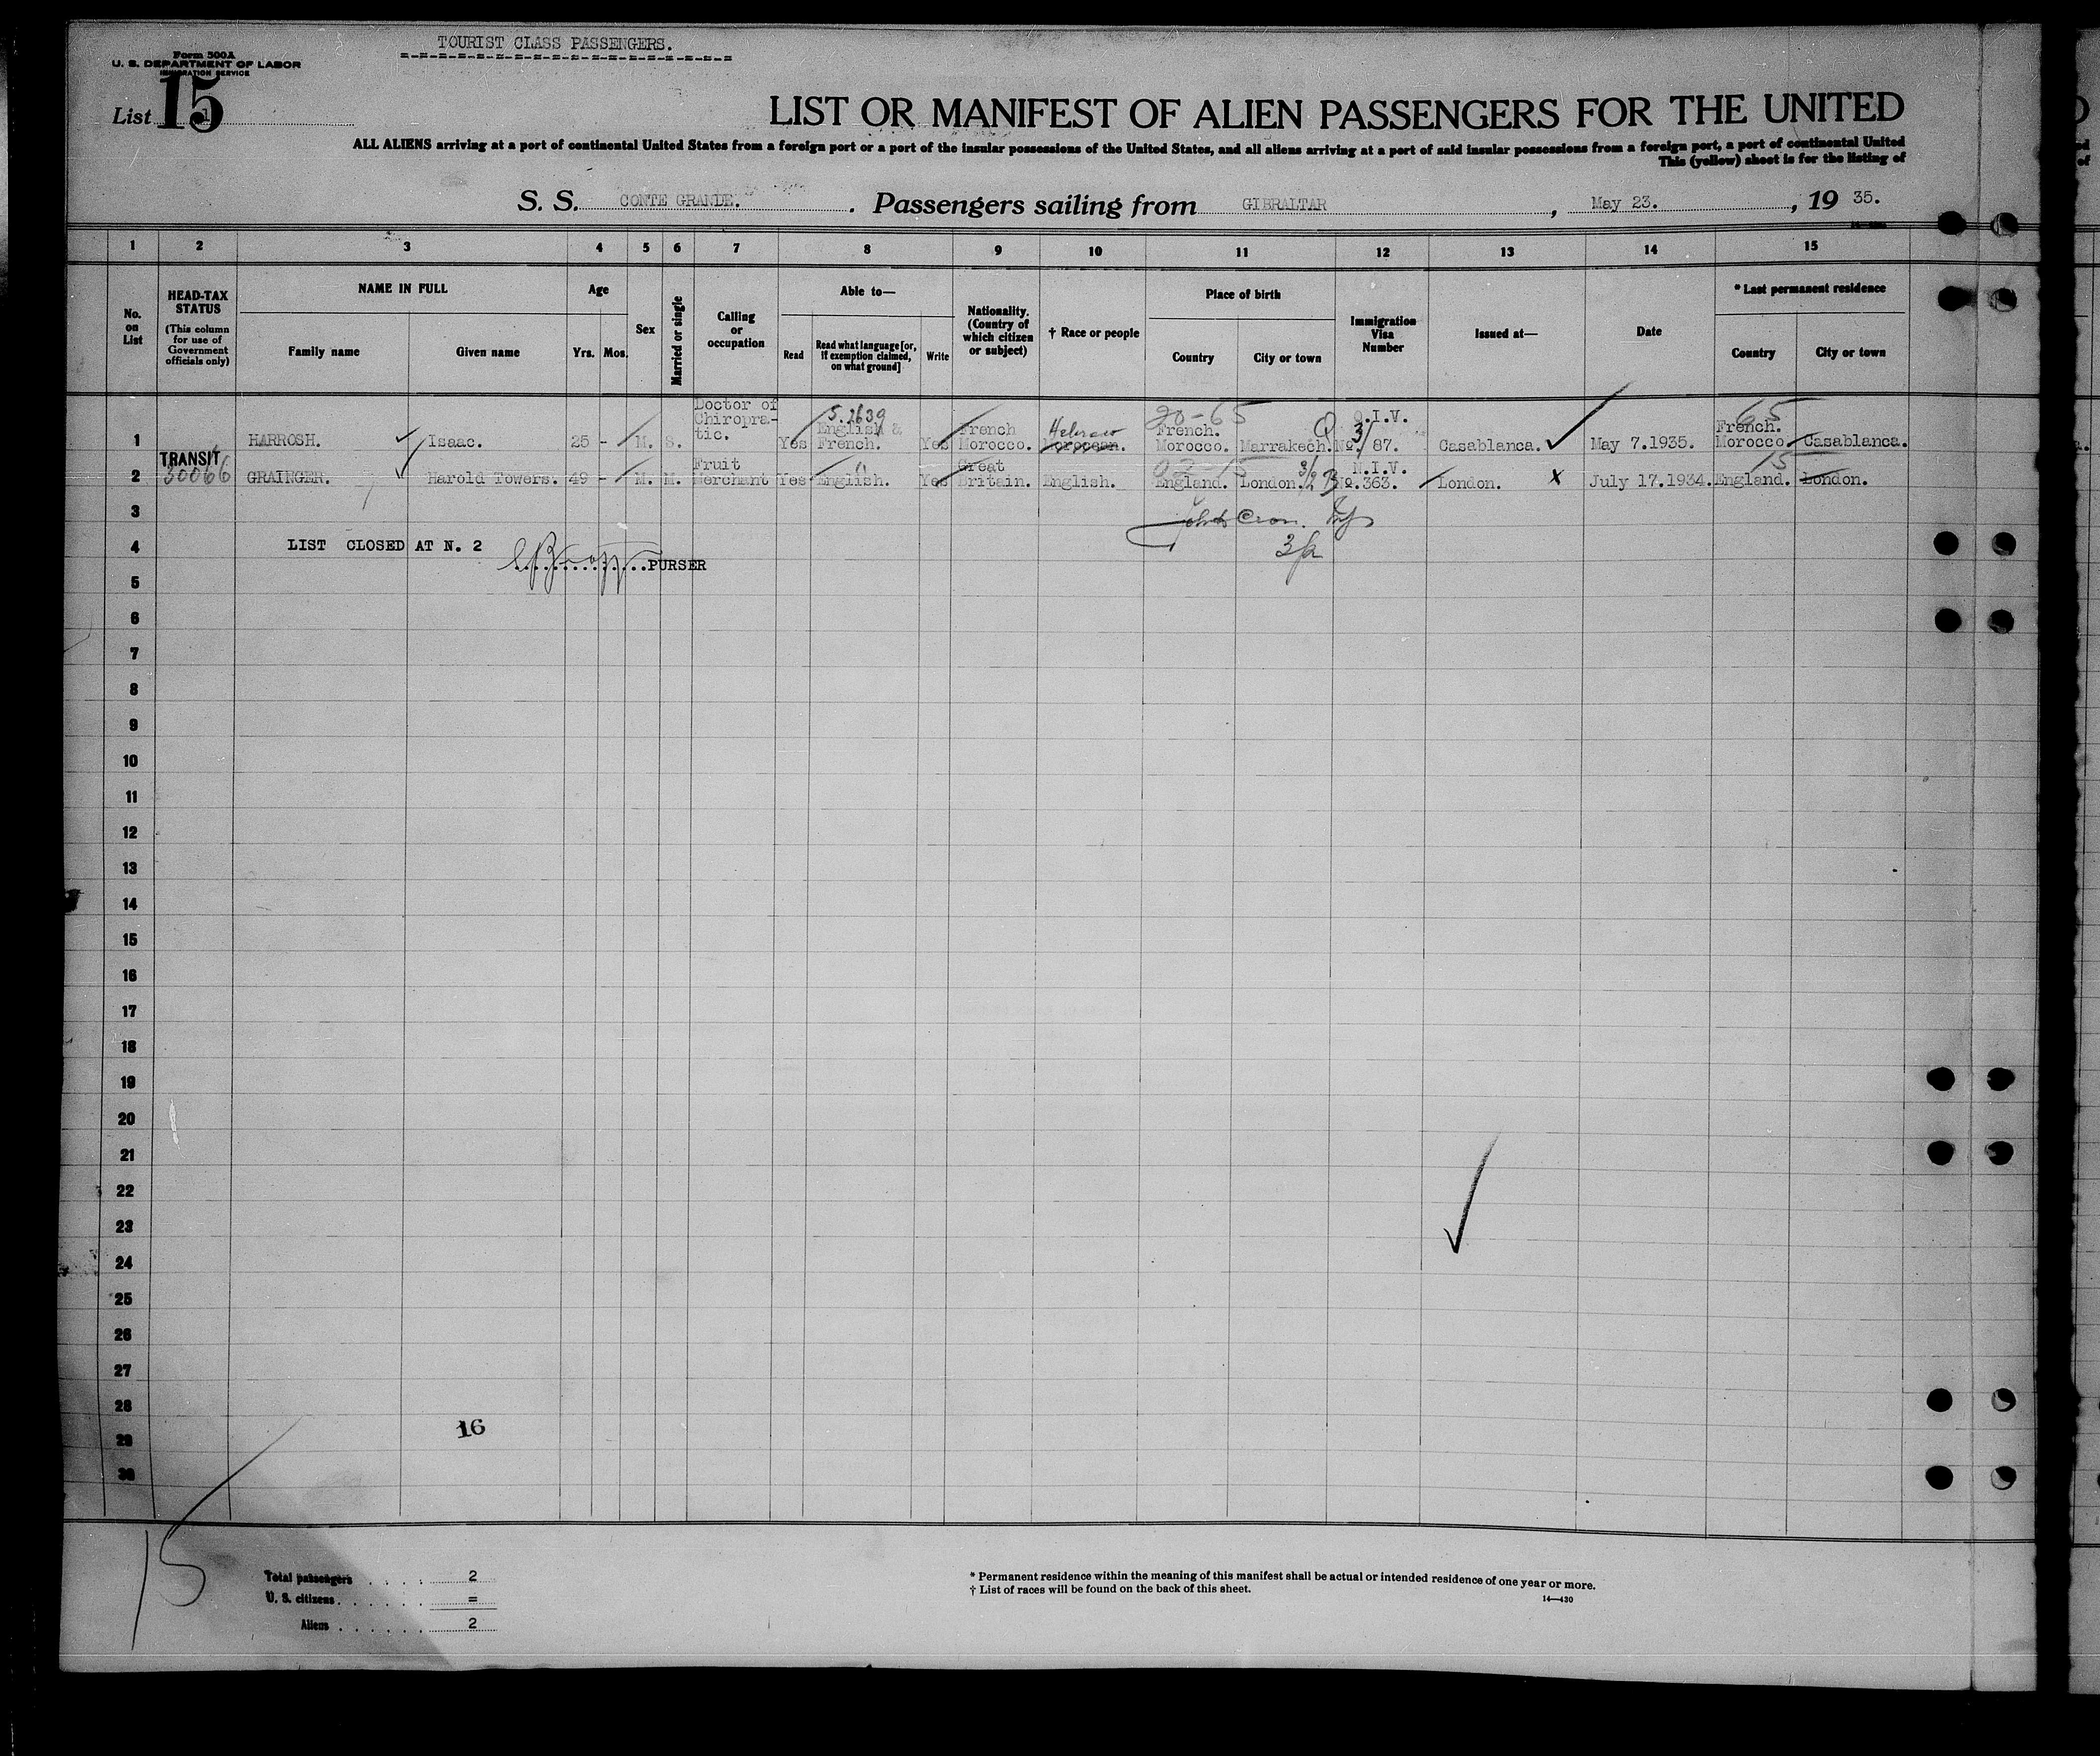 TOURIST CLASS PASSENGERS.
Form 500A
U. S. DEPARTMENT OF LABOR
IMMIGRATION SERVICE
List 15
LIST OR MANIFEST OF ALIEN PASSENGERS FOR THE UNITED
ALL ALIENS arriving at a port of continental United States from a foreign port or a port of the insular possessions of the United States, and all aliens arriving at a port of said insular possessions from a foreign port, a port of continental United
This (yellow) sheet is for the listing of
S. S. CONTE GRANDE. Passengers sailing from GIBRALTAR, May 23., 19 35.
1 2 3 4 5 6 7 8 9 10 11 12 13 14 15
No. on List
HEAD-TAX STATUS (This column for use of Government officials only)
NAME IN FULL
Family name Given name
Age
Yrs. Mos.
Sex
Married or single
Calling or occupation
Able to—
Read Read what language [or, if exemption claimed, on what ground] Write
Nationality. (Country of which citizen or subject)
† Race or people
Place of birth
Country City or town
Immigration Visa Number
Issued at—
Date
* Last permanent residence
Country City or town
1 HARROSH. Isaac. 25 - M. S. Doctor of Chiropra-tic. Yes 5.2639 English & French. Yes French Morocco. Hebrew Morocean. 20-65 French. Morocco. Marrakech. Q.I.V. Nº. 87. Casablanca. May 7.1935. 65 French. Morocco. Casablanca.
2 TRANSIT 30066 GRAINGER. Harold Towers. 49 - M. M. Fruit Merchant Yes English. Yes Great Britain. English. England. London. N.I.V. Nº.363. London. x July 17.1934. 15 England. London.
3
4 LIST CLOSED AT N. 2
PURSER
3/2
5
6
7
8
9
10
11
12
13
14
15
16
17
18
19
20
21
22
23
24
25
26
27
28
16
29
30
15
Total passengers . . . . 2
U. S. citizens . . . . . . =
Aliens . . . . . . 2
* Permanent residence within the meaning of this manifest shall be actual or intended residence of one year or more.
† List of races will be found on the back of this sheet.
14—430